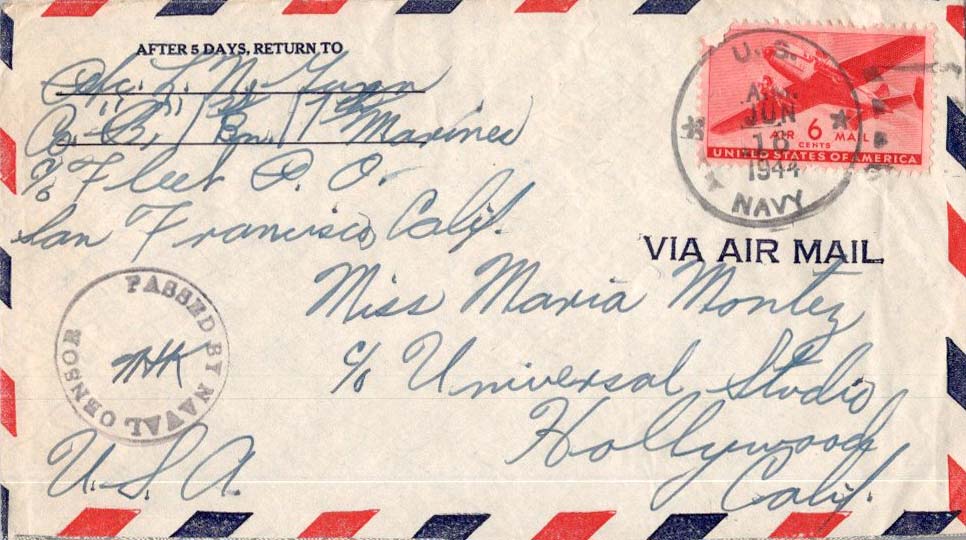 AFTER 5 DAYS, RETURN TO
Pfc. L. N.
Co. B, 1st Bn. 1st Marines
c/o Fleet P. O.
San Francisco, Calif.
U. S.
JUN
18
1944
NAVY
AIR 6 MAIL
CENTS
UNITED STATES OF AMERICA
VIA AIR MAIL
Miss Maria Montez
c/o Universal Studio
Hollywood
Calif.
PASSED BY NAVAL CENSOR
U.S.A.